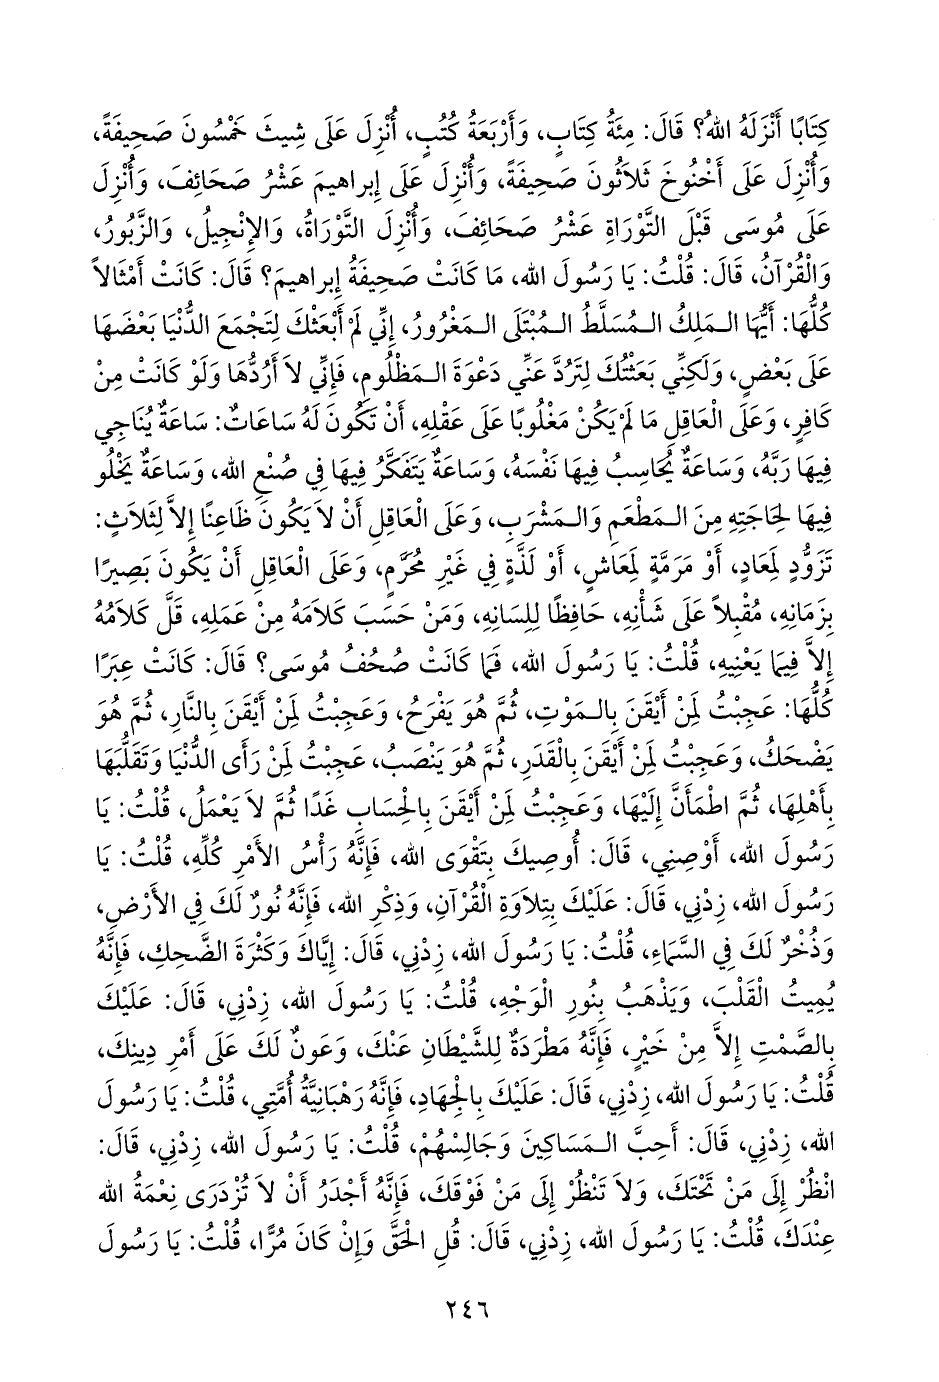 كِتَابًا أَنْزَلَهُ اللهُ؟ قَالَ: مِئَةُ كِتَابٍ، وَأَرْبَعَةُ كُتُبٍ، أُنْزِلَ عَلَى شِيثَ خَمْسُونَ صَحِيفَةً،
وَأُنْزِلَ عَلَى أَخْنُوخَ ثَلَاثُونَ صَحِيفَةً، وَأُنْزِلَ عَلَى إِبراهِيمَ عَشْرُ صَحَائِفَ، وَأُنْزِلَ
عَلَى مُوسَى قَبْلَ التَّوْرَاةِ عَشْرُ صَحَائِفَ، وَأُنْزِلَ التَّوْرَاةُ، وَالإِنْجِيلُ، وَالزَّبُورُ،
وَالْقُرْآنُ، قَالَ: قُلْتُ: يَا رَسُولَ الله، مَا كَانَتْ صَحِيفَةُ إِبراهِيمَ؟ قَالَ: كَانَتْ أَمْثَالاً
كُلُّهَا: أَيُّهَا المَلِكُ المُسَلَّطُ المُبْتَلَى المَغْرُورُ، إِنِّي لَمْ أَبْعَثْكَ لِتَجْمَعَ الدُّنْيَا بَعْضَهَا
عَلَى بَعْضٍ، وَلَكِنِّي بَعَثْتُكَ لِتَرُدَّ عَنِّي دَعْوَةَ المَظْلُومِ، فَإِنِّي لاَ أَرُدُّهَا وَلَوْ كَانَتْ مِنْ
كَافِرٍ، وَعَلَى الْعَاقِلِ مَا لَمْ يَكُنْ مَغْلُوبًا عَلَى عَقْلِهِ، أَنْ تَكُونَ لَهُ سَاعَاتٌ: سَاعَةٌ يُنَاجِي
فِيهَا رَبَّهُ، وَسَاعَةٌ يُحَاسِبُ فِيهَا نَفْسَهُ، وَسَاعَةٌ يَتَفَكَّرُ فِيهَا فِي صُنْعِ الله، وَسَاعَةٌ يَخْلُو
فِيهَا لِحَاجَتِهِ مِنَ المَطْعَمِ وَالمَشْرَبِ، وَعَلَى الْعَاقِلِ أَنْ لاَ يَكُونَ ظَاعِنًا إِلاَّ لِثَلاَثٍ:
تَزَوُّدٍ لِمَعَادٍ، أَوْ مَرَمَّةٍ لِمَعَاشٍ، أَوْ لَذَّةٍ فِي غَيْرِ مُحَرَّمٍ، وَعَلَى الْعَاقِلِ أَنْ يَكُونَ بَصِيرًا
بِزَمَانِهِ، مُقْبِلاً عَلَى شَأْنِهِ، حَافِظًا لِلِسَانِهِ، وَمَنْ حَسَبَ كَلاَمَهُ مِنْ عَمَلِهِ، قَلَّ كَلاَمُهُ
إِلاَّ فِيمَا يَعْنِيهِ، قُلْتُ: يَا رَسُولَ الله، فَمَا كَانَتْ صُحُفُ مُوسَى؟ قَالَ: كَانَتْ عِبَرًا
كُلُّهَا: عَجِبْتُ لِمَنْ أَيْقَنَ بِالمَوْتِ، ثُمَّ هُوَ يَفْرَحُ، وَعَجِبْتُ لِمَنْ أَيْقَنَ بِالنَّارِ، ثُمَّ هُوَ
يَضْحَكُ، وَعَجِبْتُ لِمَنْ أَيْقَنَ بِالْقَدَرِ، ثُمَّ هُوَ يَنْصَبُ، عَجِبْتُ لِمَنْ رَأَى الدُّنْيَا وَتَقَلُّبَهَا
بِأَهْلِهَا، ثُمَّ اطْمَأَنَّ إِلَيْهَا، وَعَجِبْتُ لِمَنْ أَيْقَنَ بِالْحِسَابِ غَدًا ثُمَّ لاَ يَعْمَلُ، قُلْتُ: يَا
رَسُولَ الله، أَوْصِنِي، قَالَ: أُوصِيكَ بِتَقْوَى الله، فَإِنَّهُ رَأْسُ الأَمْرِ كُلِّهِ، قُلْتُ: يَا
رَسُولَ الله، زِدْنِي، قَالَ: عَلَيْكَ بِتِلاَوَةِ الْقُرْآنِ، وَذِكْرِ الله، فَإِنَّهُ نُورٌ لَكَ فِي الأَرْضِ،
وَذُخْرٌ لَكَ فِي السَّمَاءِ، قُلْتُ: يَا رَسُولَ الله، زِدْنِي، قَالَ: إِيَّاكَ وَكَثْرَةَ الضَّحِكِ، فَإِنَّهُ
يُمِيتُ الْقَلْبَ، وَيَذْهَبُ بِنُورِ الْوَجْهِ، قُلْتُ: يَا رَسُولَ الله، زِدْنِي، قَالَ: عَلَيْكَ
بِالصَّمْتِ إِلاَّ مِنْ خَيْرٍ، فَإِنَّهُ مَطْرَدَةٌ لِلشَّيْطَانِ عَنْكَ، وَعَونٌ لَكَ عَلَى أَمْرِ دِينِكَ،
قُلْتُ: يَا رَسُولَ الله، زِدْنِي، قَالَ: عَلَيْكَ بِالْجِهَادِ، فَإِنَّهُ رَهْبَانِيَّةُ أُمَّتِي، قُلْتُ: يَا رَسُولَ
الله، زِدْنِي، قَالَ: أَحِبَّ المَسَاكِينَ وَجَالِسْهُمْ، قُلْتُ: يَا رَسُولَ الله، زِدْنِي، قَالَ:
انْظُرْ إِلَى مَنْ تَحْتَكَ، وَلاَ تَنْظُرْ إِلَى مَنْ فَوْقَكَ، فَإِنَّهُ أَجْدَرُ أَنْ لاَ تُزْدَرَى نِعْمَةُ الله
عِنْدَكَ، قُلْتُ: يَا رَسُولَ الله، زِدْنِي، قَالَ: قُلِ الْحَقَّ وَإِنْ كَانَ مُرًّا، قُلْتُ: يَا رَسُولَ
٢٤٦